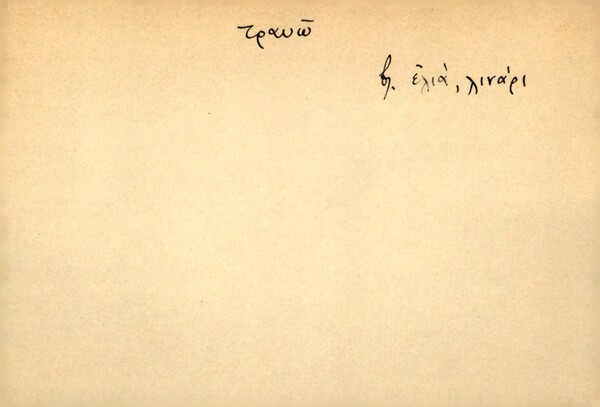 τραυῶ
βλ. ἐλιά, λινάρι